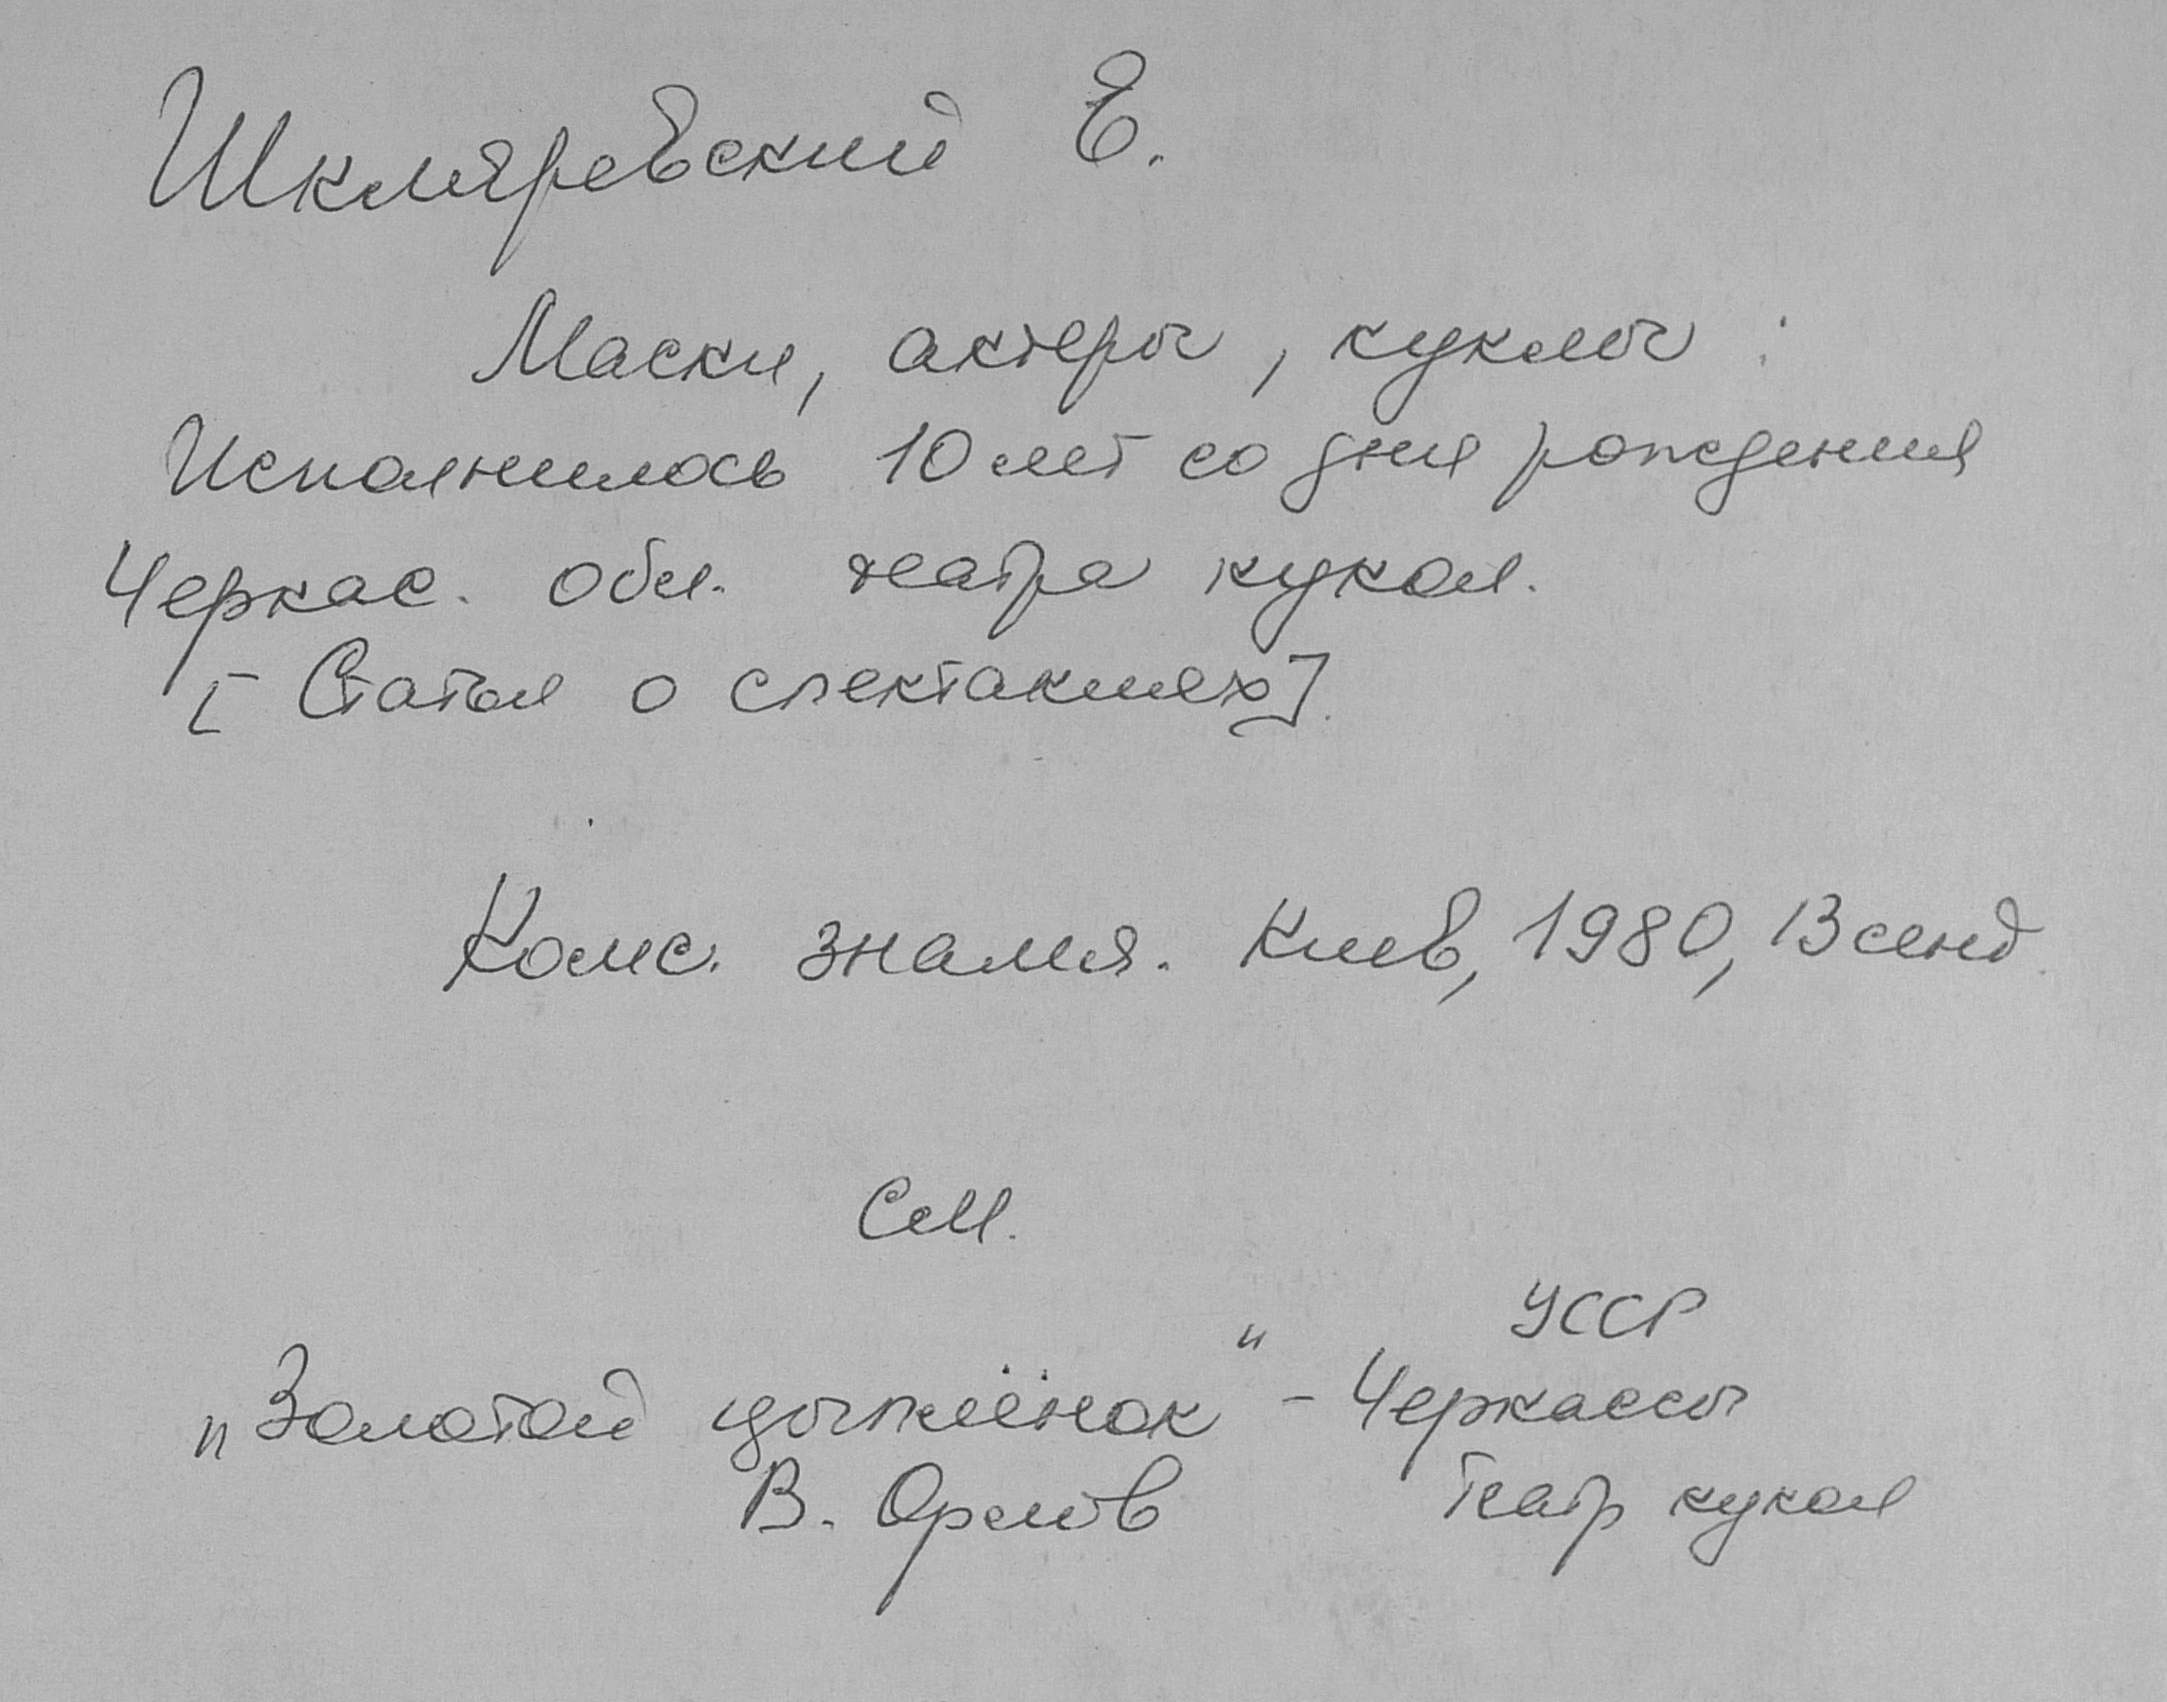 Шкляревский Е.
Маски, актеры, куклы:
Исполнилось 10 лет со дня рождения
Черкас. обл. театра кукол.
[Статья о спектаклях].
Комс. знамя. Киев, 1980, 13 сент.
См.
УССР
„Золотой цыплёнок" - Черкассы
В. Орлов Театр кукол